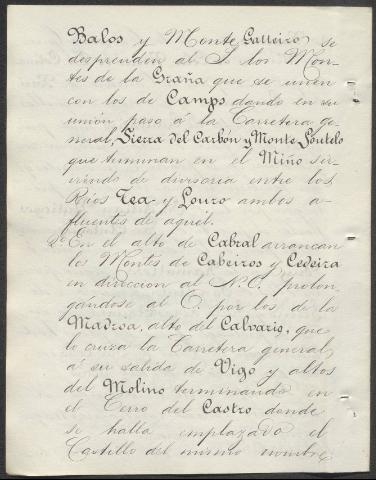 Balos y Monte Galleiro se
desprenden al S. los Mon-
tes de la Graña que se unen
con los de Camps dando en su
unión paso á la Carretera ge-
neral, Sierra del Carbón y Monte Loutelo
que terminan en el Miño sir-
viendo de divisoria entre los
Rios Tea y Louro ambos a-
fluentes de aquél.
2º En el alto de Cabral arrancan
los Montes de Cabeiros y Cedeira
en dirección al N.O. prolon-
gándose al O. por los de la
Madroa, alto del Calvario, que
lo cruza la Carretera general,
á su salida de Vigo y altos
del Molino terminando en
el Cerro del Castro donde
se halla emplazado el
Castillo del mismo nombre;